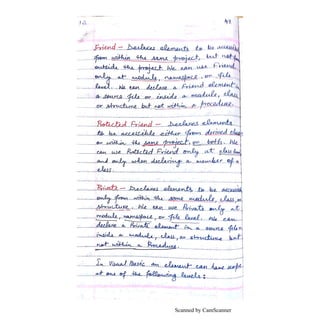 Friend - Declares elements to be accessible
from within the same project, but not from
outside the project. We can use Friend
only at module, namespace, or file
level. We can declare a Friend element in
a source file or inside a module, class
or structure but not within a procedure.
Protected Friend - Declares elements
to be accessible either from derived classes
or within the same project, or both. We
can use Protected Friend only at class level
and only when declaring a member of a
class.
Private - Declares elements to be accessible
only from within the same module, class, or
structure. We can use Private only at
module, namespace, or file level. We can
declare a Private element in a source file or
inside a module, class, or structure but
not within a Procedure.
In Visual Basic an element can have scope
at one of the following levels:
Scanned by CamScanner